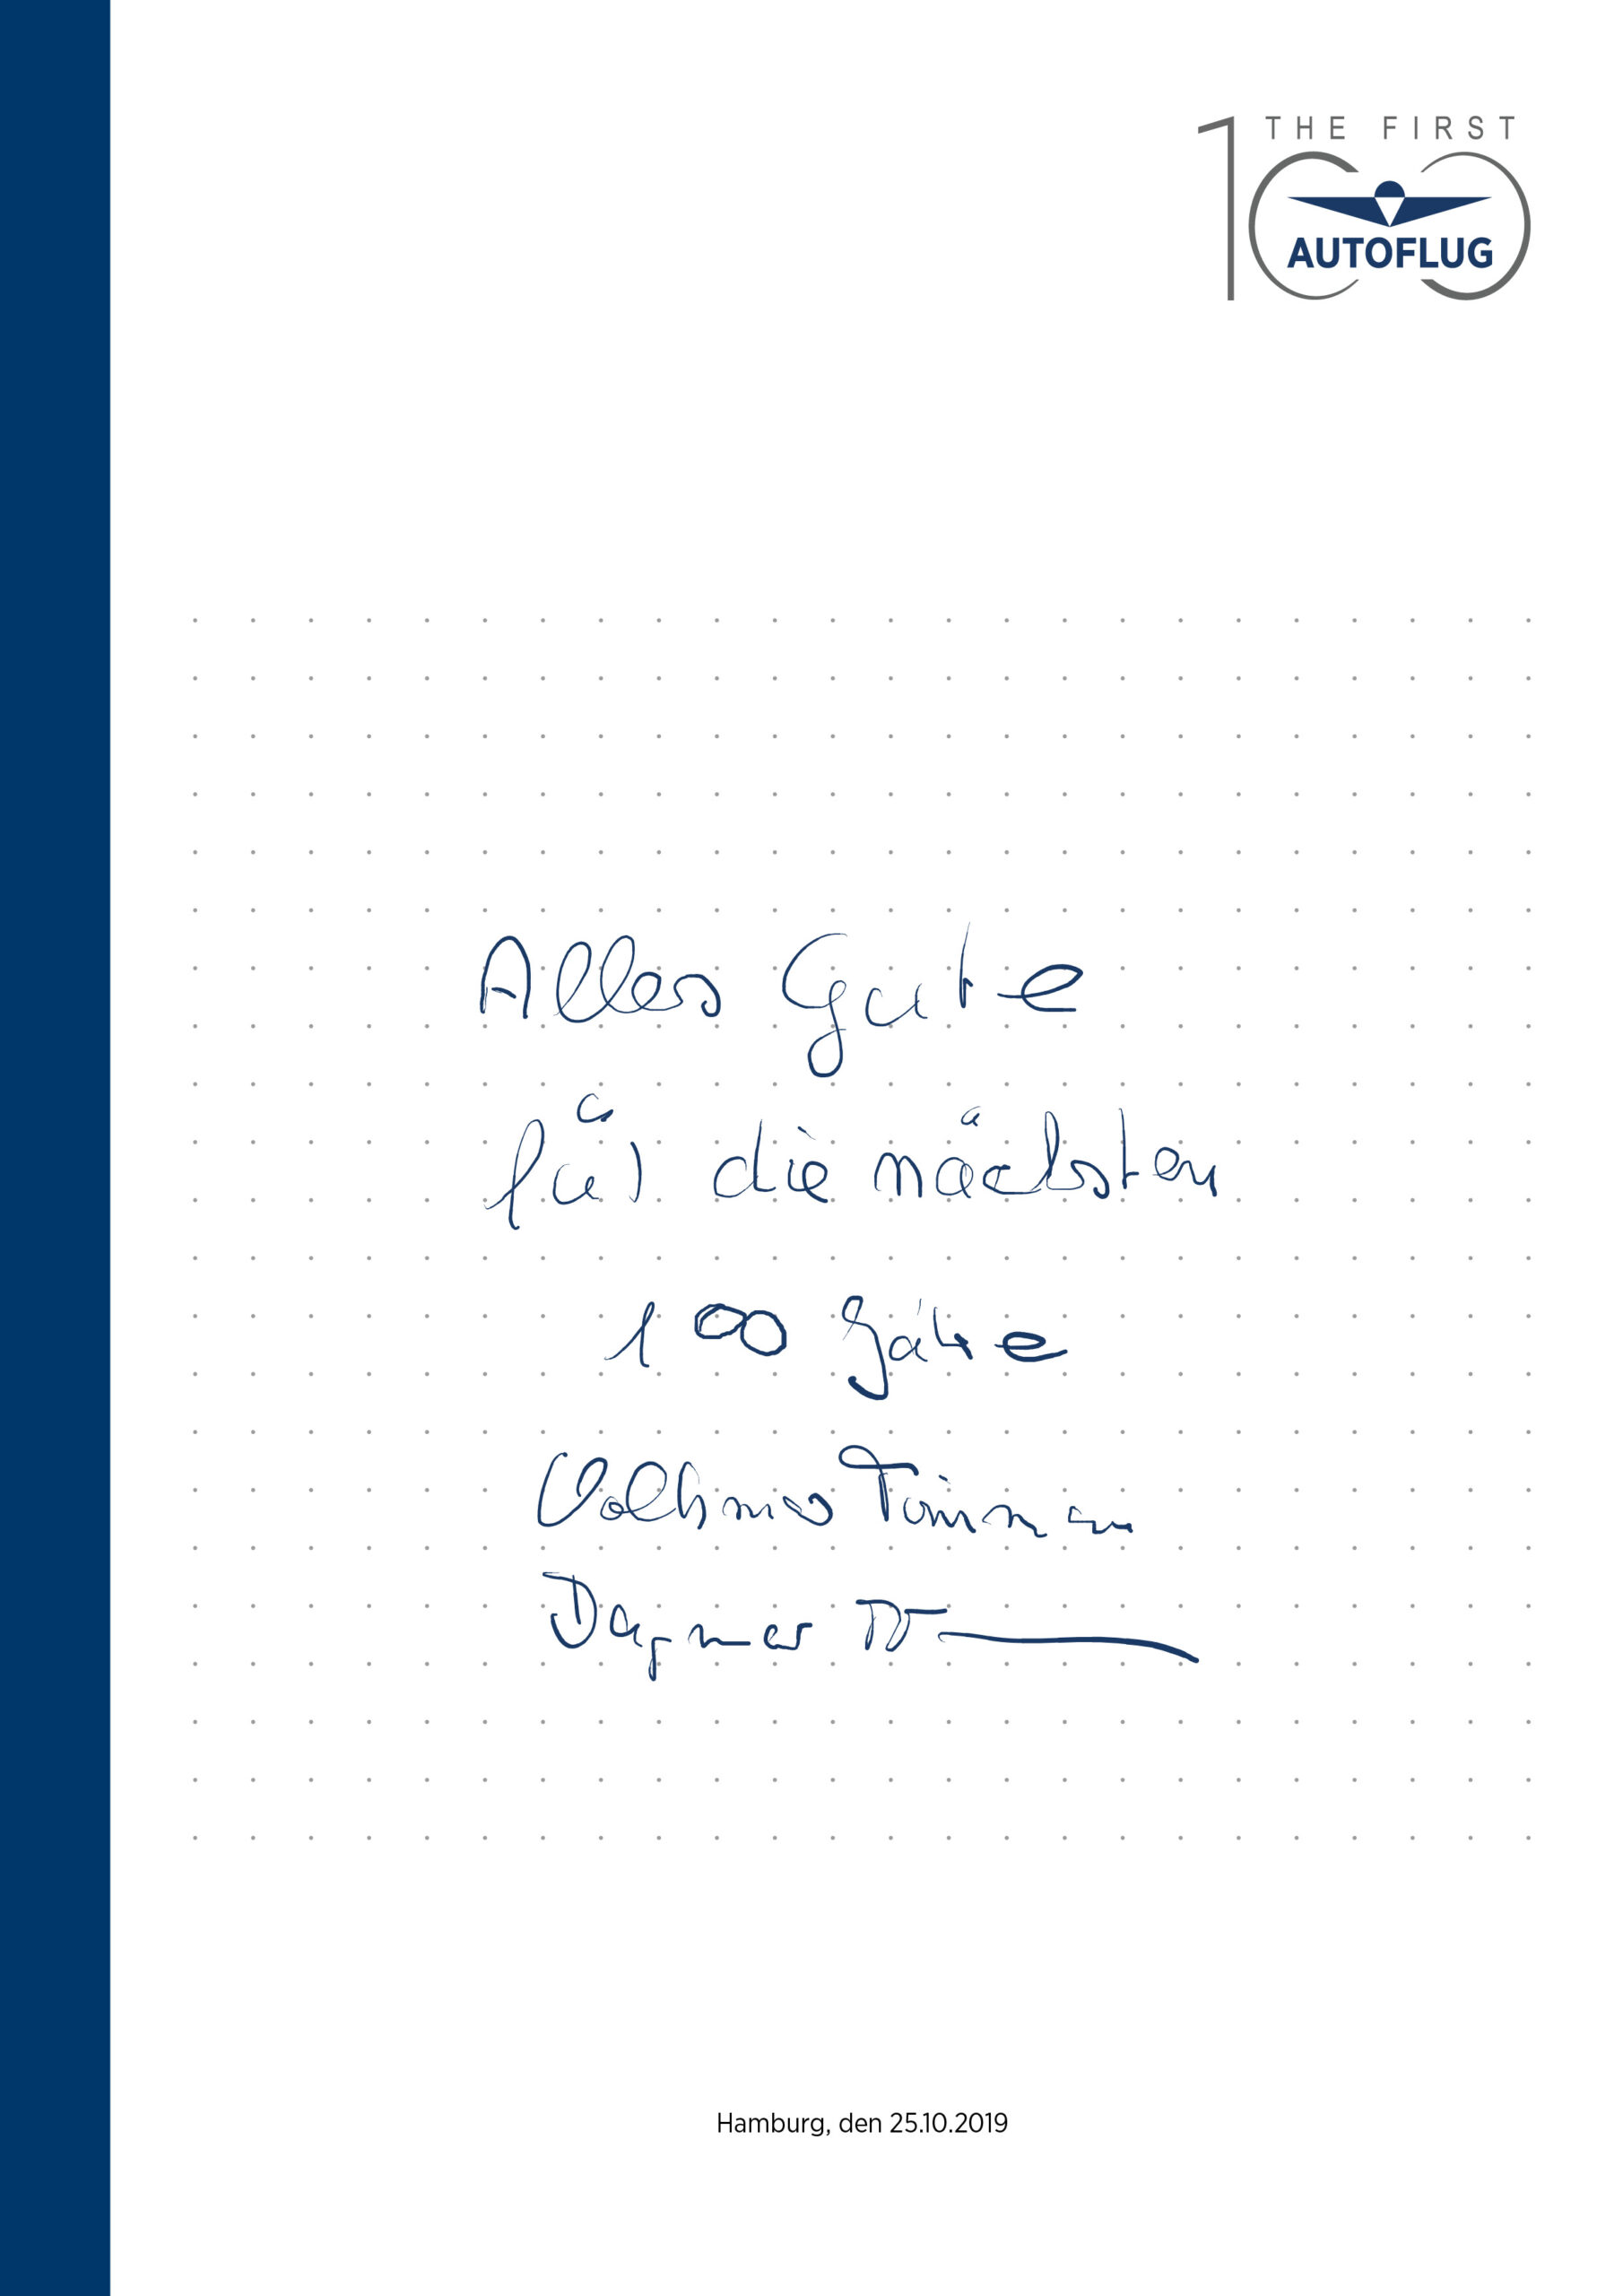 THE FIRST
100
AUTOFLUG
Alles Gute
für die nächsten
100 Jahre
Dagmar
Hamburg, den 25.10.2019